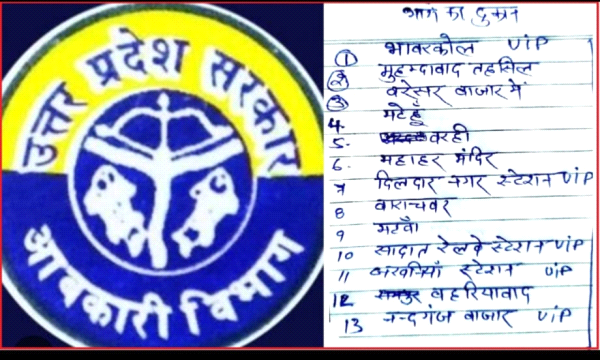 उत्तर प्रदेश सरकार
आबकारी विभाग
भांग की दुकान
1 भावरकोल VIP
2 मुहम्दाबाद तहसिल
3 बरेसर बाजार में
4. मटेहूँ
5. वरही
6. महाहर मंदिर
7 दिलदार नगर स्टेशन VIP
8 बाराचवर
9
10 सादात रेलवे स्टेशन VIP
11 स्टेशन VIP
12 बहरियाबाद
13 नन्दगंज बाजार VIP